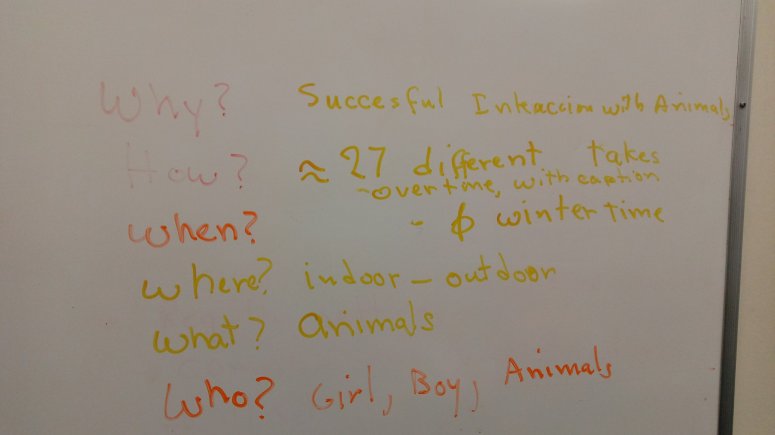 Why? Succesful Inteaccion with Animals
How? ≈ 27 different takes
- over time, with caption
when? - ϕ winter time
where? indoor - outdoor
what? animals
who? Girl, Boy, Animals